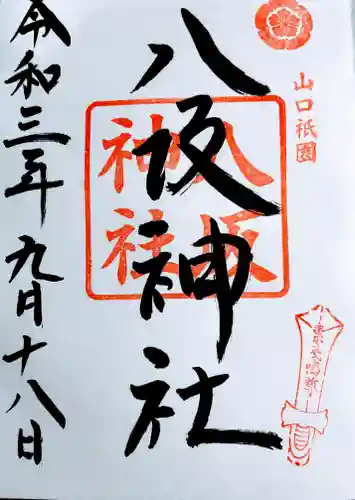 山口祇園
八坂神社
八坂
神社
令和三年九月十八日